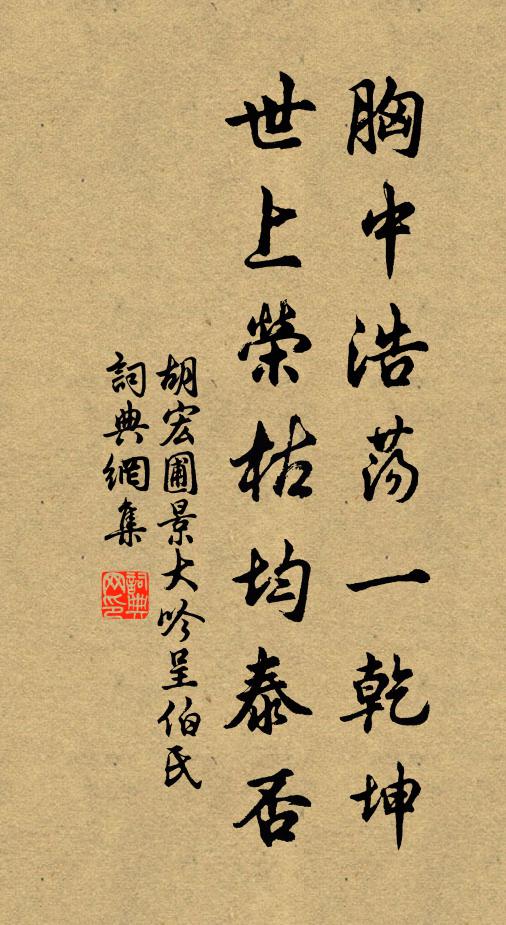 胸中浩荡一乾坤
世上榮枯均泰否
胡宏圃景大吟呈伯氏
詞典網集
詞典網印